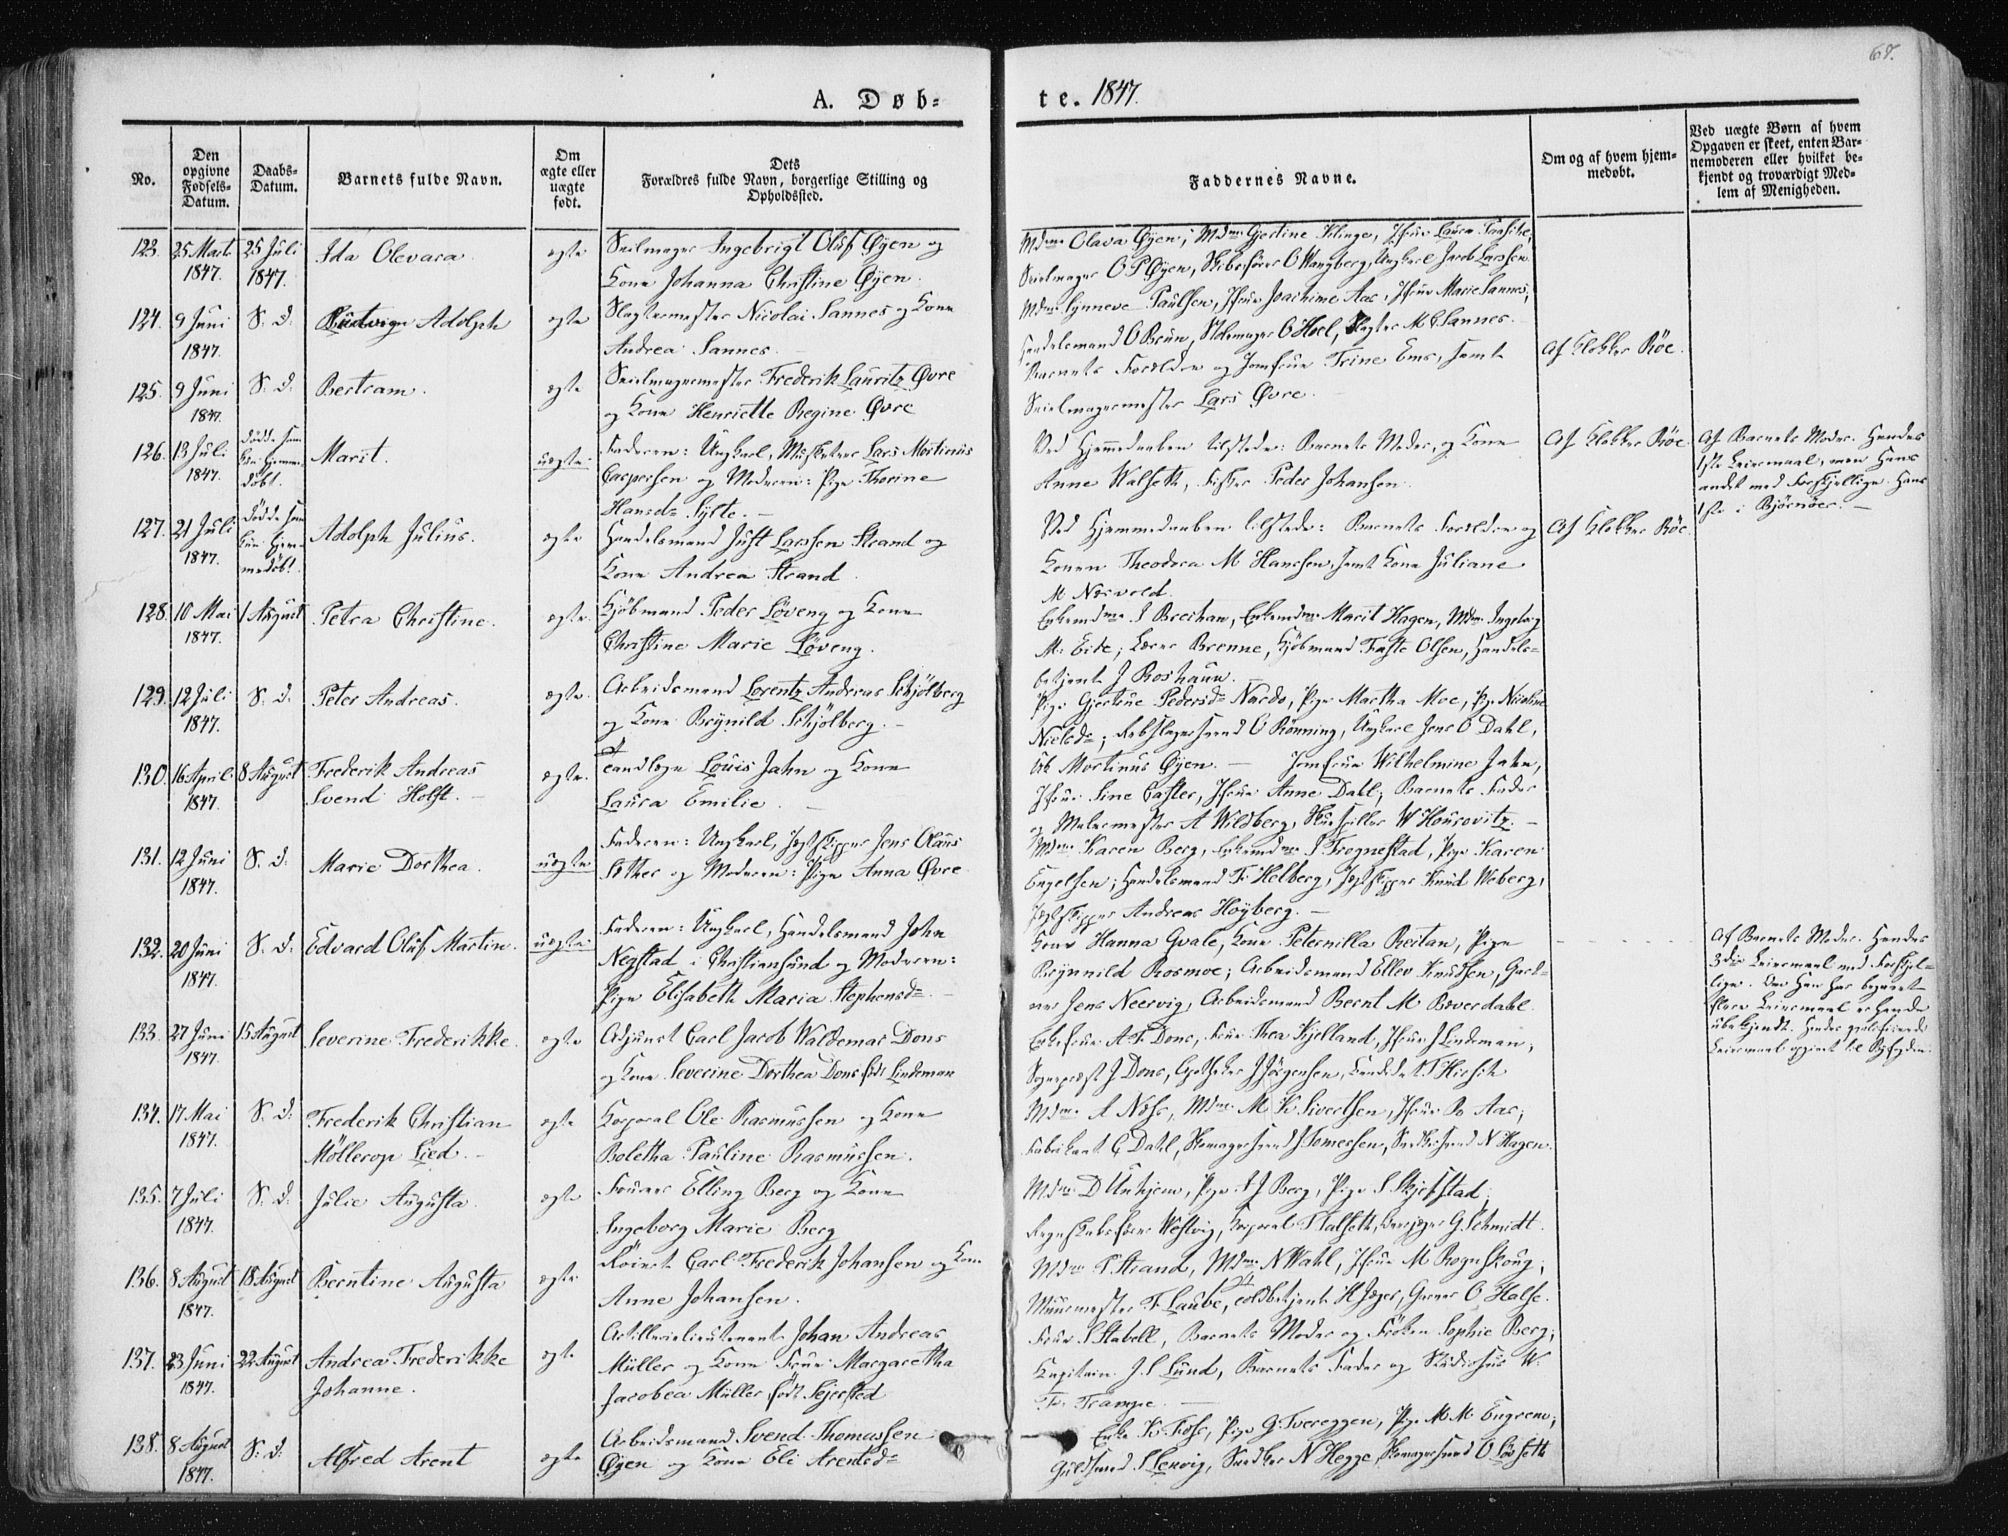 68.
A. Døb=
te. 1847.
No.
Den opgivne Fødsels-Datum.
Daabs-Datum.
Barnets fulde Navn.
Om ægte eller uægte født.
Dets Forældres fulde Navn, borgerlige Stilling og Opholdssted.
Faddernes Navne.
Om og af hvem hjem-medøbt.
Ved uægte Børn af hvem Opgaven er skeet, enten Bar-nemoderen eller hvilket be-kjendt og troværdigt Med-lem af Menigheden.
123. 25 Marts 1847. 25 Juli 1847. Ida Olevara. ægte
Seilmager Ingebrigt Oluf Øyen og
Kone Johanna Christine Øyen.
Mdme Olava Øyen, Mdme Gjertine Klinge, Jfrue Laura
Seilmager O P Øyen, Skibsfører O Wangberg, Ungkarl Jacob Larssen
124. 9 Juni 1847. S. D. Ludvig Adolph ægte
Slagtermester Nicolai Sannes og Kone
Andrea Sannes.
Mdme Synneve Paulsen, Jfrue Joachime Aas, Jfrue Marie Sannes,
Handelsmand O Bruun, Stolemager O Hoel, Slagter M C Sannes.
125. 9 Juni 1847. S. D. Bertram. ægte
Seilmagermester Frederik Lauritz Øvre
og Kone Henriette Regine Øvre
Barnets Forældre og Jomfrue Trine Ems, samt
Seilmagermester Lars Øvre.
Af Klokker Röe.
126. 13 Juli 1847. Døde som kun hjemmedøbt. Marit. uægte.
Faderen: Ungkarl, Musketeer Lars Martinus
Caspersen og Moderen: Pige Thorine
Hansd= Sylte.
Ved Hjemmedaaben tilstede: Barnets Moder, og Kone
Anne Walseth, Fisker Peder Johansen.
Af Klokker Röe
Af Barnets Moder. Hendes
1ste Leiermaal, men Hans
andet med Forskjellige. Hans
1ste i Bjørnöer.
127. 21 Juli 1847. Døde som kun hjemmedøbt. Adolph Julius. ægte
Handelsmand Just Larssen Strand og
Kone Andrea Strand.
Ved Hjemmedaaben tilstede: Barnets Forældre og
Konen Theodora M Hanssen, samt Kone Juliane
M Næsvold.
Af Klokker Röe
128. 10 Mai 1847. 1 August Petra Christine. ægte.
Kjöbmand Peder Löveng og Kone
Christine Marie Löveng.
Enkemdme S Breihan, Enkemdme Marit Hagen, Mdme Ingeborg
M. Eide; Lærer Brenne, Kjöbmand Faste Olsen, Handels=
betjent J Roshauw.
129. 12 Juli 1847. S. D. Peter Andreas. ægte.
Arbeidsmand Lorentz Andreas Schjölberg
og Kone Brynild Schjölberg.
Pige Gjertrue Pedersd= Nardo, Pige Martha Moe, Pige Nicoline
Nielsd=; Rebslagersvend O Rönning, Ungkarl Jens O Dahl,
Uk Martinus Øyen.
130. 16 April 1847. 8 August Frederik Andreas Svend Holst. ægte.
Tandlæge Louis Jahn og Kone
Laura Emilie.
Jomfrue Wilhelmine Jahn,
Jfrue Sine Casler, Jfrue Anne Dahl; Barnets Fader
og Malermester A Wildberg, Skuespiller W Hourovitz.
131. 12 Juni 1847. S. D. Marie Dorthea. uægte
Faderen: Ungkarl, Jagtskipper Jens Olaus
Sæther og Moderen: Pige Anna Øvre.
Mdme Karen Berg, Enkemdme S Frognestad, Pige Karen
Engelsen; Handelsmand F. Helberg, Jagtskipper Knud Weberg,
Jagtskipper Andreas Höyberg.
132. 20 Juni 1847. S. D. Edvard Oluf Martin. uægte.
Faderen: Ungkarl, Handelsmand John
Negstad i Christiansund og Moderen:
Pige Elisabeth Maria Stephensd=.
Kone Hanna Qvale, Kone Peternilla Reitan, Pige
Brynnild Rosmoe; Arbeidsmand Ellev Knudsen, Gart=
ner Jens Neervig, Arbeidsmand Bernt M Boverdahl.
Af Barnets Moder. Hendes
3die Leiermaal med Forskjel=
lige. Om Han har begaaet
flere Leiermaal er Hende
ubekjendt.
133. 27 Juni 1847. 15 August Severine Frederikke. ægte
Adjunct Carl Jacob Waldemar Dons
og Kone Severine Dorthea Dons född Lindeman
Enkefrue A F Dons, Frue Thea Kjelland, Jfrue J Lindeman,
Sogneprest J Dons, Apotheker J Jörgensen, Candidat T Hirsch
134. 17 Mai 1847. S. D. Frederik Christian Möllerop Lied. ægte
Korporal Ole Rasmussen og Kone
Boletha Pauline Rasmussen.
Mdme A Næss, Mdme M K. Sivertsen, Jfrue B Aas;
Fabrikant C Dahl, Skomagersvend J Tomessen, Snedkersvend N Hagen.
135. 7 Juli 1847. S. D. Julie Augusta. ægte
Fourer Elling Berg og Kone
Ingeborg Marie Berg
Mdme D Unhjem, Pige A J Berg, Pige S Skjefstad,
Regnskabsförer Westvig, Korporal T Talseth, Corpsjæger G Schmidt.
136. 8 August 1847. 18 August Berntine Augusta ægte
Röiert Carl Frederik Johansen og Kone
Anne Johansen.
Mdme P. Strand, Mdme N Wahl, Jfrue M Rognskoug,
Muurmester F. Laube, Toldbetjent H Jæger, Garver O Halse.
137. 23 Juni 1847. 22 August Andrea Frederikke Johanne. ægte
Artillerielieutenant Johan Andreas
Müller og Kone Frue Margaretha
Jacobea Müller född Sejersted
Frue S Stabell, Barnets Moder og Fröken Sophie Berg;
Kapitain J. S Lund, Barnets Fader og Studiosus W.
F. Trampe.
138. 8 August 1847. S. D. Alfred Arent ægte
Arbeidsmand Svend Thomassen
Øyen og Kone Eli Arentsd=
Enke K. Foss, Pige G. Tvereggen, Pige M M Engrem;
Guldsmed S Lervig, Snedker N Hegge, Skomagersvend O Löseth